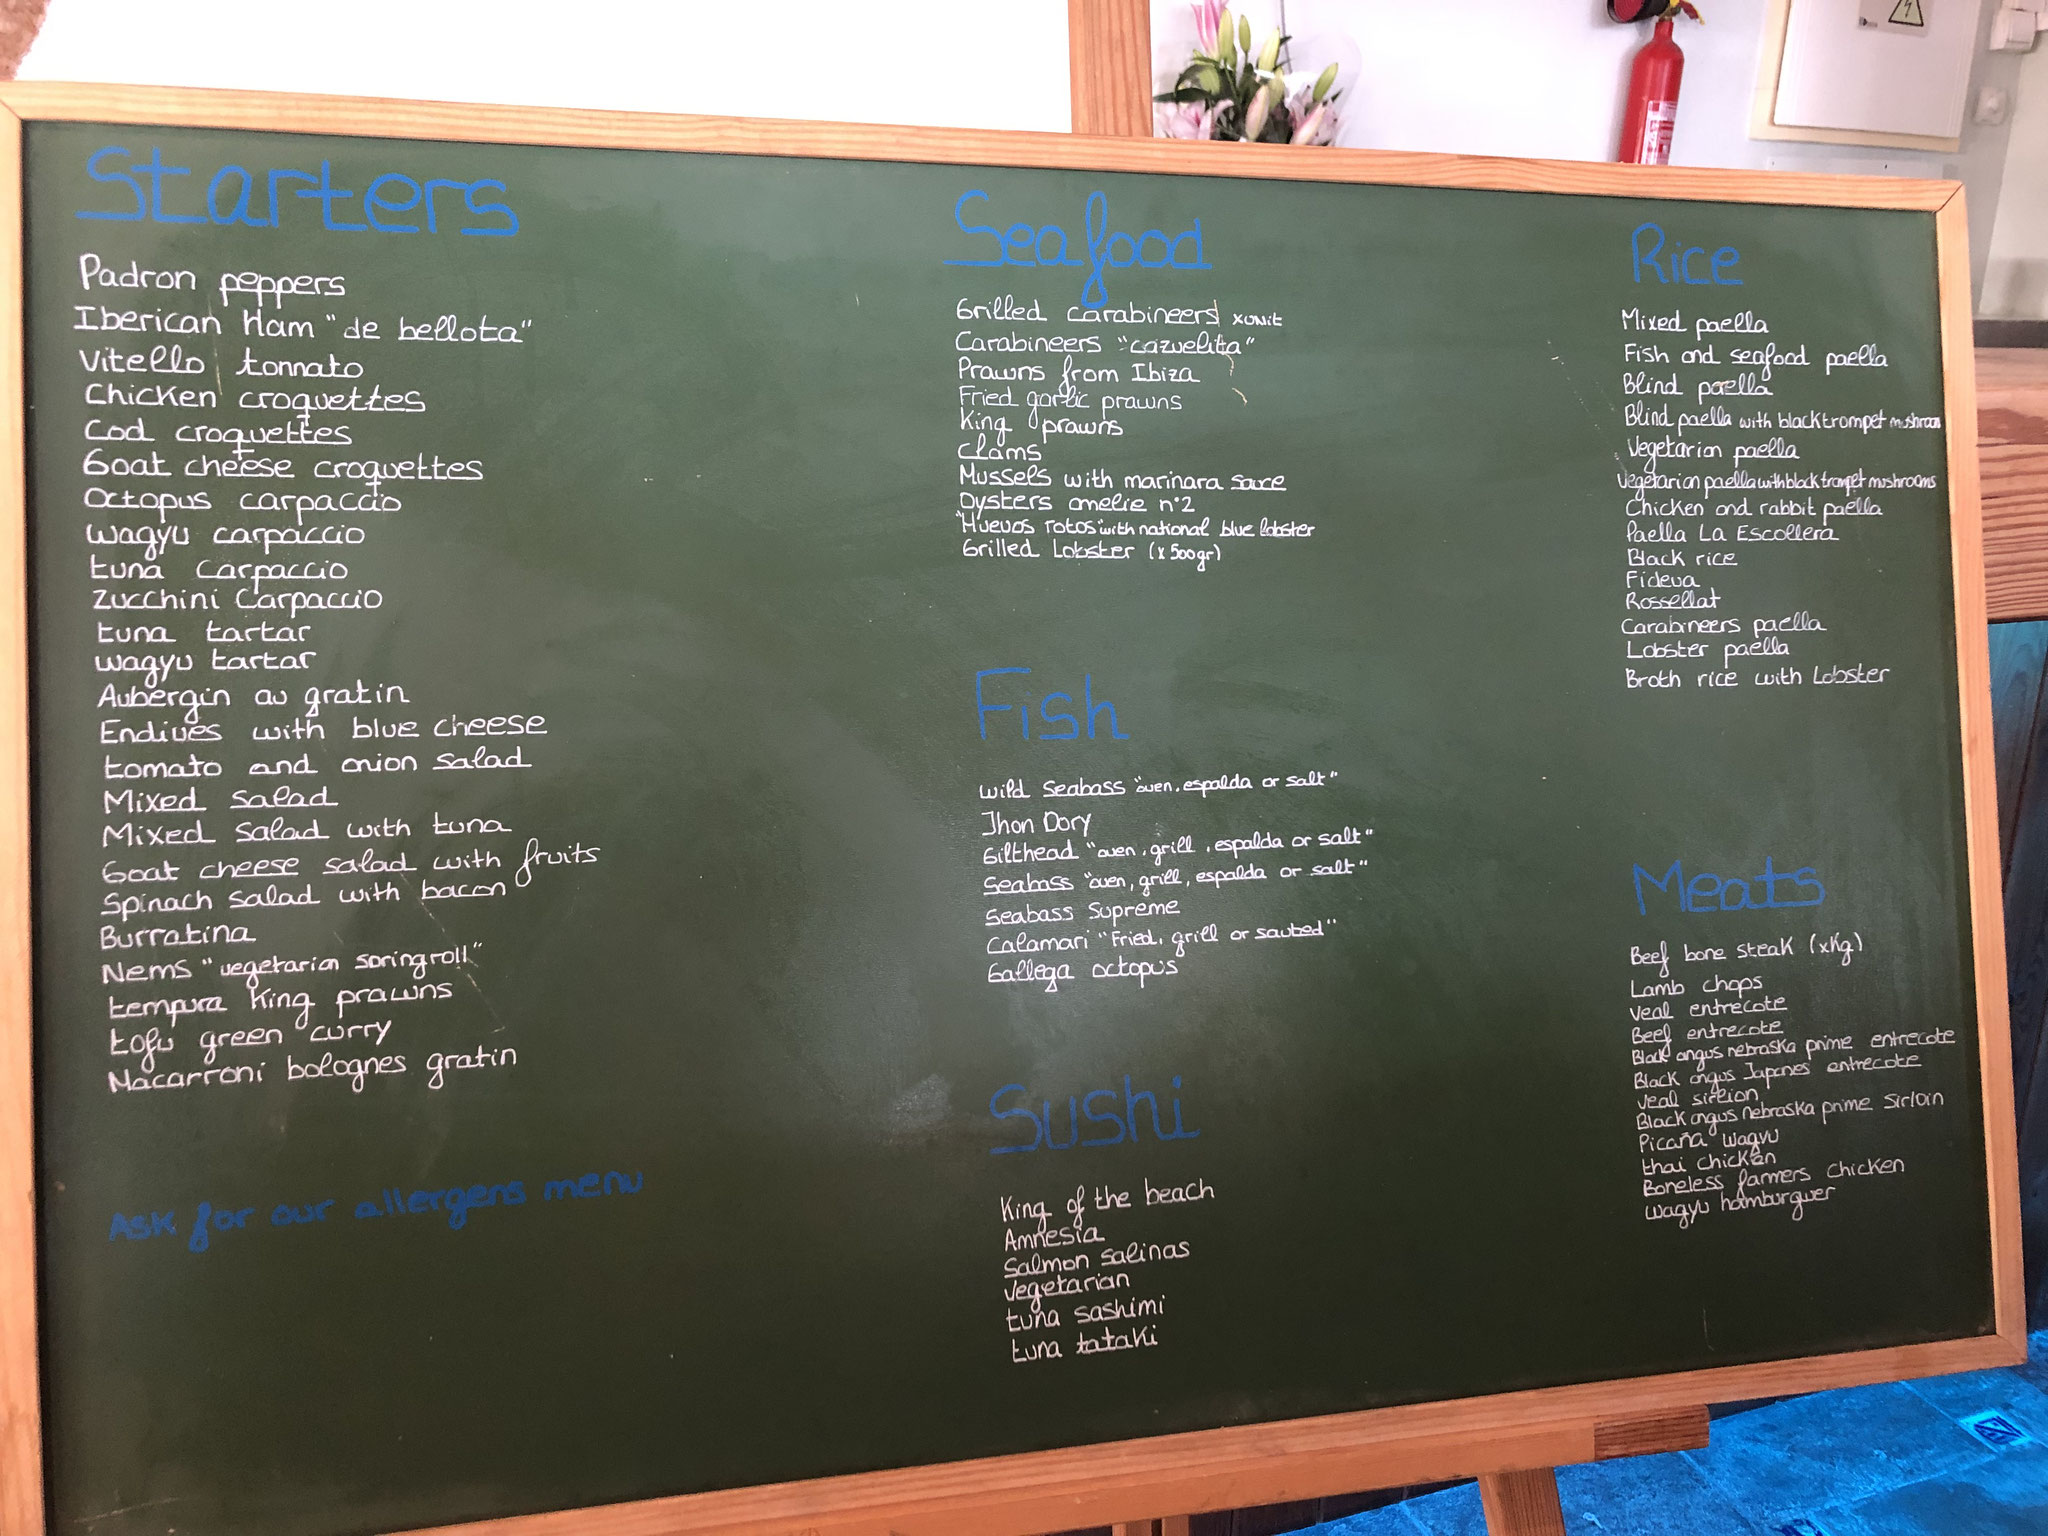 Starters
Padron peppers
Iberican Ham "de bellota"
Vitello tonnato
Chicken croquettes
Cod croquettes
Goat cheese croquettes
Octopus carpaccio
Wagyu carpaccio
tuna carpaccio
Zucchini Carpaccio
tuna tartar
Wagyu tartar
Aubergin au gratin
Endives with blue cheese
tomato and onion salad
Mixed salad
Mixed salad with tuna
Goat cheese salad with fruits
Spinach salad with bacon
Burratina
Nems "vegetarian springroll"
tempura King prawns
tofu green curry
Macarroni bolognes gratin
Ask for our allergens menu
Seafood
Grilled carabineers xunit
Carabineers "cazuelita"
Prawns from Ibiza
Fried garlic prawns
King prawns
Clams
Mussels with marinara sauce
Oysters amelie nº2
"Huevos rotos" with national blue lobster
Grilled Lobster (x 500gr)
Fish
Wild Seabass "oven, espalda or salt"
Jhon Dory
Gilthead "oven, grill, espalda or salt"
Seabass "oven, grill, espalda or salt"
Seabass Supreme
Calamari "Fried, grill or sauted"
Gallega octopus
Sushi
King of the beach
Amnesia
Salmon salinas
Vegetarian
tuna sashimi
tuna tataki
Rice
Mixed paella
Fish and seafood paella
Blind paella
Blind paella with black trompet mushroom
Vegetarian paella
Vegetarian paella with black trompet mushrooms
Chicken and rabbit paella
Paella La Escollera
Black rice
Fideua
Rossellat
Carabineers paella
Lobster paella
Broth rice with Lobster
Meats
Beef bone steak (xKg)
Lamb chops
Veal entrecote
Beef entrecote
Black angus nebraska prime entrecote
Black angus Japones entrecote
Veal sirlion
Black angus nebraska prime sirloin
Picaña wagyu
thai chicken
Boneless farmers chicken
Wagyu hamburguer